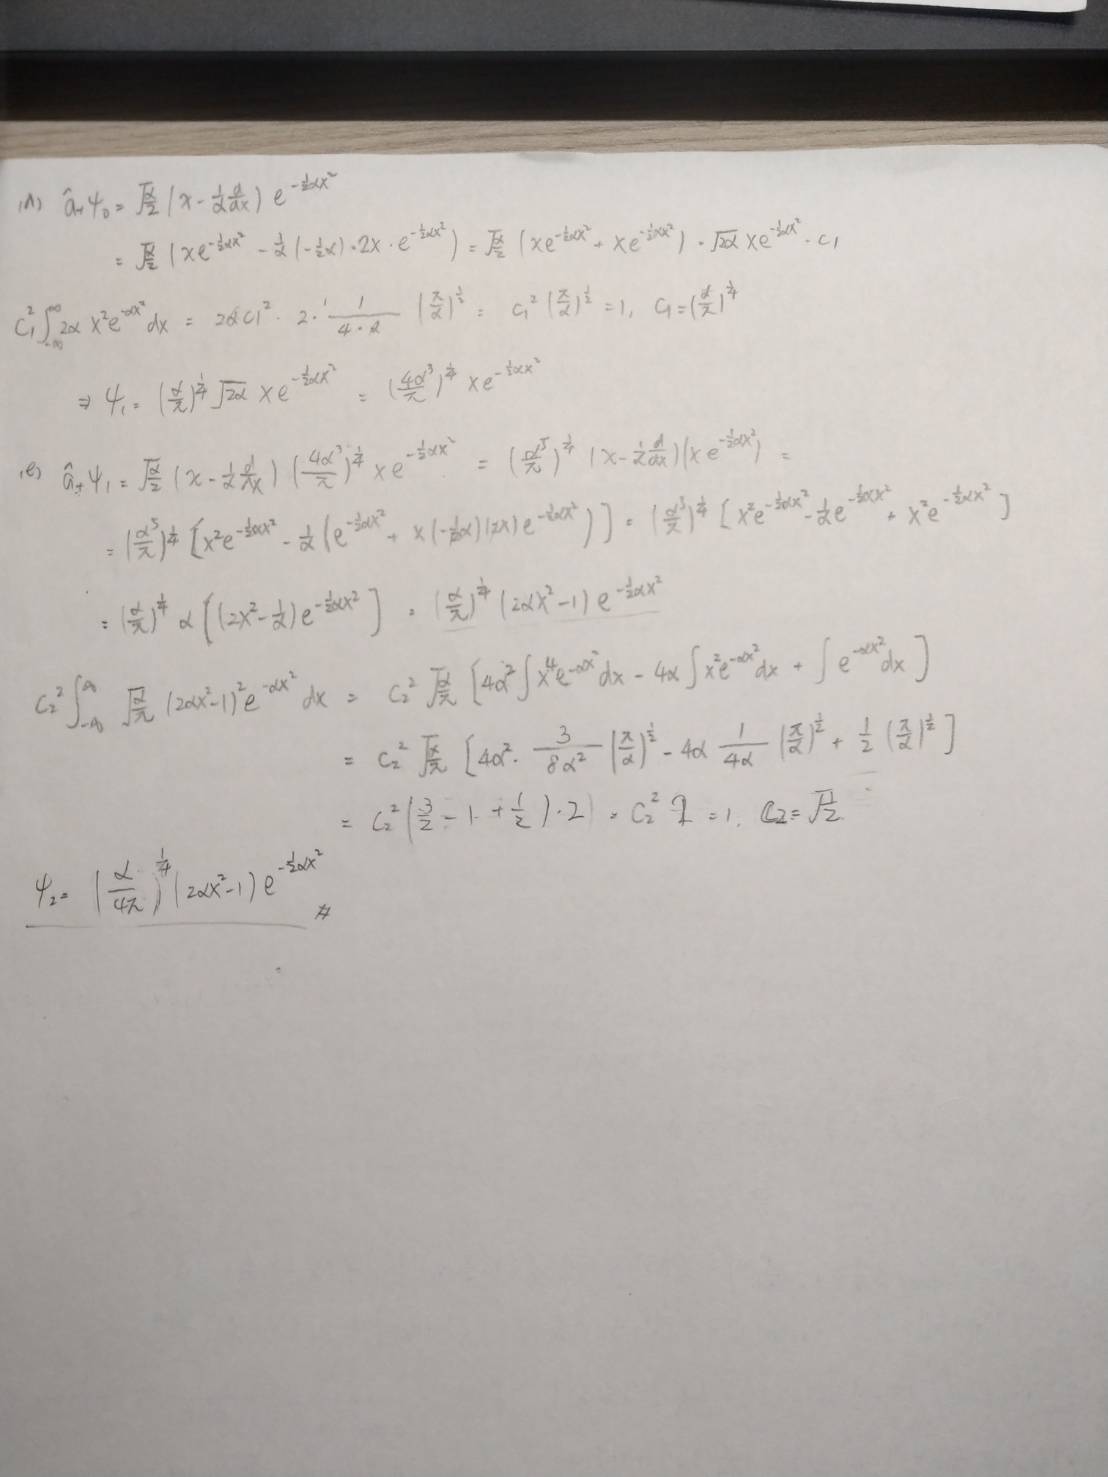 (d) â₊ψ₀ = √(α/2) (x - 1/α d/dx) e^(-½αx²)
= √(α/2) (xe^(-½αx²) - 1/α (-½α)·2x·e^(-½αx²)) = √(α/2) (xe^(-½αx²) + xe^(-½αx²)) · √(2α) xe^(-½αx²) · c₁
c₁² ∫_(-∞)^∞ 2α x²e^(-αx²) dx = 2αc₁² · 2 · 1/(4·α) (π/α)^½ = c₁² (π/α)^½ = 1, c₁ = (α/π)^¼
⇒ ψ₁ = (α/π)^¼ √(2α) xe^(-½αx²) = (4α³/π)^¼ xe^(-½αx²)
(e) â₊ψ₁ = √(α/2) (x - 1/α d/dx) (4α³/π)^¼ xe^(-½αx²) = (α⁵/π)^¼ (x - 1/α d/dx)(xe^(-½αx²)) =
= (α⁵/π)^¼ [x²e^(-½αx²) - 1/α (e^(-½αx²) + x(-½α)(2x)e^(-½αx²))] = (α⁵/π)^¼ [x²e^(-½αx²) - 1/α e^(-½αx²) + x²e^(-½αx²)]
= (α/π)^¼ α [(2x² - 1/α)e^(-½αx²)] = (α/π)^¼ (2αx²-1) e^(-½αx²)
c₂² ∫_(-∞)^∞ √(α/π) (2αx²-1)² e^(-αx²) dx = c₂² √(α/π) [4α² ∫x⁴e^(-αx²)dx - 4α ∫x²e^(-αx²)dx + ∫e^(-αx²)dx]
= c₂² √(α/π) [4α² · 3/(8α²) (π/α)^½ - 4α 1/(4α) (π/α)^½ + ½ (π/α)^½]
= c₂² (3/2 - 1 + ½)·2) = c₂² 2 = 1. c₂ = √(1/2)
ψ₂ = (α/4π)^¼ (2αx²-1) e^(-½αx²) #